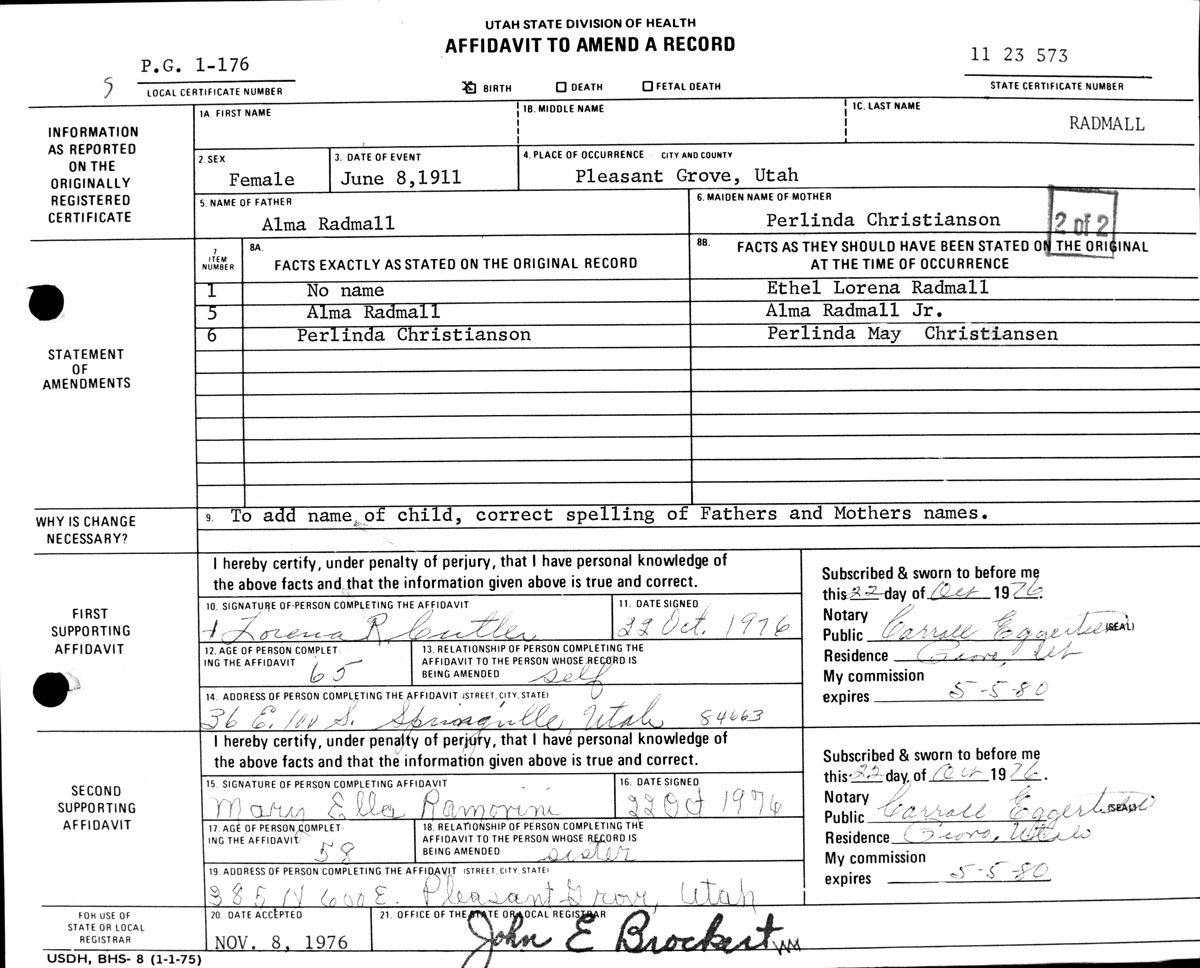 UTAH STATE DIVISION OF HEALTH
AFFIDAVIT TO AMEND A RECORD
P.G. 1-176
LOCAL CERTIFICATE NUMBER
☒ BIRTH ☐ DEATH ☐ FETAL DEATH
11 23 573
STATE CERTIFICATE NUMBER
INFORMATION
AS REPORTED
ON THE
ORIGINALLY
REGISTERED
CERTIFICATE
1A. FIRST NAME
1B. MIDDLE NAME
1C. LAST NAME
RADMALL
2. SEX
Female
3. DATE OF EVENT
June 8,1911
4. PLACE OF OCCURRENCE - CITY AND COUNTY
Pleasant Grove, Utah
5. NAME OF FATHER
Alma Radmall
6. MAIDEN NAME OF MOTHER
Perlinda Christianson
2 of 2
STATEMENT
OF
AMENDMENTS
7
ITEM
NUMBER
8A.
FACTS EXACTLY AS STATED ON THE ORIGINAL RECORD
8B. FACTS AS THEY SHOULD HAVE BEEN STATED ON THE ORIGINAL
AT THE TIME OF OCCURRENCE
1 No name Ethel Lorena Radmall
5 Alma Radmall Alma Radmall Jr.
6 Perlinda Christianson Perlinda May Christiansen
WHY IS CHANGE
NECESSARY?
9. To add name of child, correct spelling of Fathers and Mothers names.
FIRST
SUPPORTING
AFFIDAVIT
I hereby certify, under penalty of perjury, that I have personal knowledge of
the above facts and that the information given above is true and correct.
10. SIGNATURE OF PERSON COMPLETING THE AFFIDAVIT
Lorena R Cutler
11. DATE SIGNED
22 Oct. 1976
12. AGE OF PERSON COMPLET-
ING THE AFFIDAVIT 65
13. RELATIONSHIP OF PERSON COMPLETING THE
AFFIDAVIT TO THE PERSON WHOSE RECORD IS
BEING AMENDED self
14. ADDRESS OF PERSON COMPLETING THE AFFIDAVIT (STREET, CITY, STATE)
36 E. 100 S. Springville, Utah 84663
Subscribed & sworn to before me
this 22 day of Oct 1976.
Notary
Public Carroll Eggertsen (SEAL)
Residence Provo, Ut
My commission
expires 5-5-80
SECOND
SUPPORTING
AFFIDAVIT
I hereby certify, under penalty of perjury, that I have personal knowledge of
the above facts and that the information given above is true and correct.
15. SIGNATURE OF PERSON COMPLETING AFFIDAVIT
Mary Ella Ramorini
16. DATE SIGNED
22 Oct 1976
17. AGE OF PERSON COMPLET-
ING THE AFFIDAVIT 58
18. RELATIONSHIP OF PERSON COMPLETING THE
AFFIDAVIT TO THE PERSON WHOSE RECORD IS
BEING AMENDED sister
19. ADDRESS OF PERSON COMPLETING THE AFFIDAVIT (STREET, CITY, STATE)
385 N 600 E. Pleasant Grove, Utah
Subscribed & sworn to before me
this 22 day of Oct 1976.
Notary
Public Carroll Eggertsen (SEAL)
Residence Provo, Utah
My commission
expires 5-5-80
FOR USE OF
STATE OR LOCAL
REGISTRAR
20. DATE ACCEPTED
NOV. 8, 1976
21. OFFICE OF THE STATE OR LOCAL REGISTRAR
John E Brockert
USDH, BHS- 8 (1-1-75)